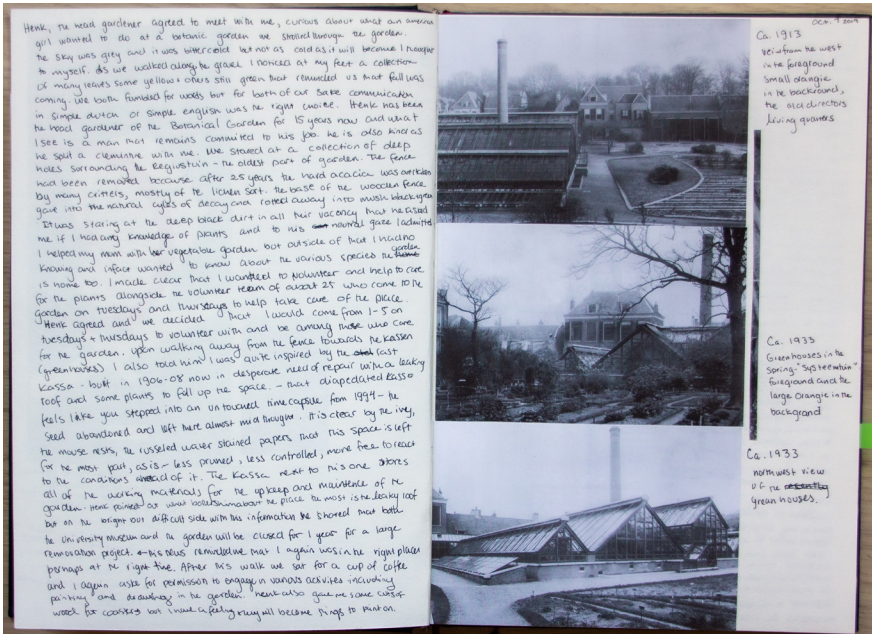 Henk, the head gardener agreed to meet with me, curious about what an american
girl wanted to do at a botanic garden we strolled through the garden.
The sky was grey and it was bitter cold but not as cold as it will become I thought
to myself. As we walked along the gravel I noticed at my feet a collection
of many leaves some yellow + others still green that reminded us that fall was
coming. We both fumbled for words but for both of our sake communication
in simple dutch or simple english was the right choice. Henk has been
the head gardener of the Botanical Garden for 15 years now and what
I see is a man that remains commited to his job. he is also kind as
he split a clemintine with me. We stared at a collection of deep
holes surrounding the - the oldest part of garden. The fence
had been removed because after 25 years the hard acacia was overtaken
by many critters, mostly of the lichen sort. the base of the wooden fence
gave into the natural cycles of decay and rotted away into mush black green
It was staring at the deep black dirt in all their vacancy that he asked
me if I had any knowledge of plants and to his neutral gaze I admitted
I helped my mom with her vegetable garden but outside of that I had no
knowing and infact wanted to know about the various species the garden
is home too. I made clear that I wanted to volunteer and help to care
for the plants alongside the volunteer team of about 25 who come to the
garden on tuesdays and thursdays to help take care of the place.
Henk agreed and we decided that I would come from 1-5 on
tuesdays + thursdays to volunteer with and be among those who care
for the garden. Upon walking away from the fence towards the kassen
(greenhouses) I also told him I was quite inspired by the last
Kassa - built in 1906-08 now in desperate need of repair with a leaking
roof and some plants to fill up the space. - that diapedated kassa
feels like you stepped into an untouched time capsule from 1994 - the
seed abandoned and left there almost mid thought. It is clear by the ivy,
the mouse nests, the russeled water stained papers that this space is left
for the most part, as is - less pruned, less controlled, more free to react
to the conditions ahead of it. The Kassa next to this one stores
all of the working materials for the upkeep and maintence of the
garden. Henk pointed out what the place the most is the leaky roof
but on the bright but difficult side with this information he shared that both
the University Museum and the garden will be closed for 1 year for a large
rennovation project. this news reminded me that I again was in the right place
perhaps at the right time. After this walk we sat for a cup of coffee
and I again ask for permission to engage in various activites including
painting and drawing in the garden. Henk also gave me some cuts of
wood for coasters but I have a feeling they will become things to print on.
Oct. 9 2019
Ca. 1913
view from the west
in the foreground
small orangie
in the background,
the old directors
living quarters
Ca. 1933
Greenhouses in the
spring - "systeemtuin"
foreground and the
large orangie in the
background
Ca. 1933
northwest view
of the
green houses.